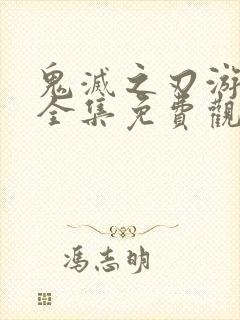 鬼滅之刃游
全集免費觀
馮志明